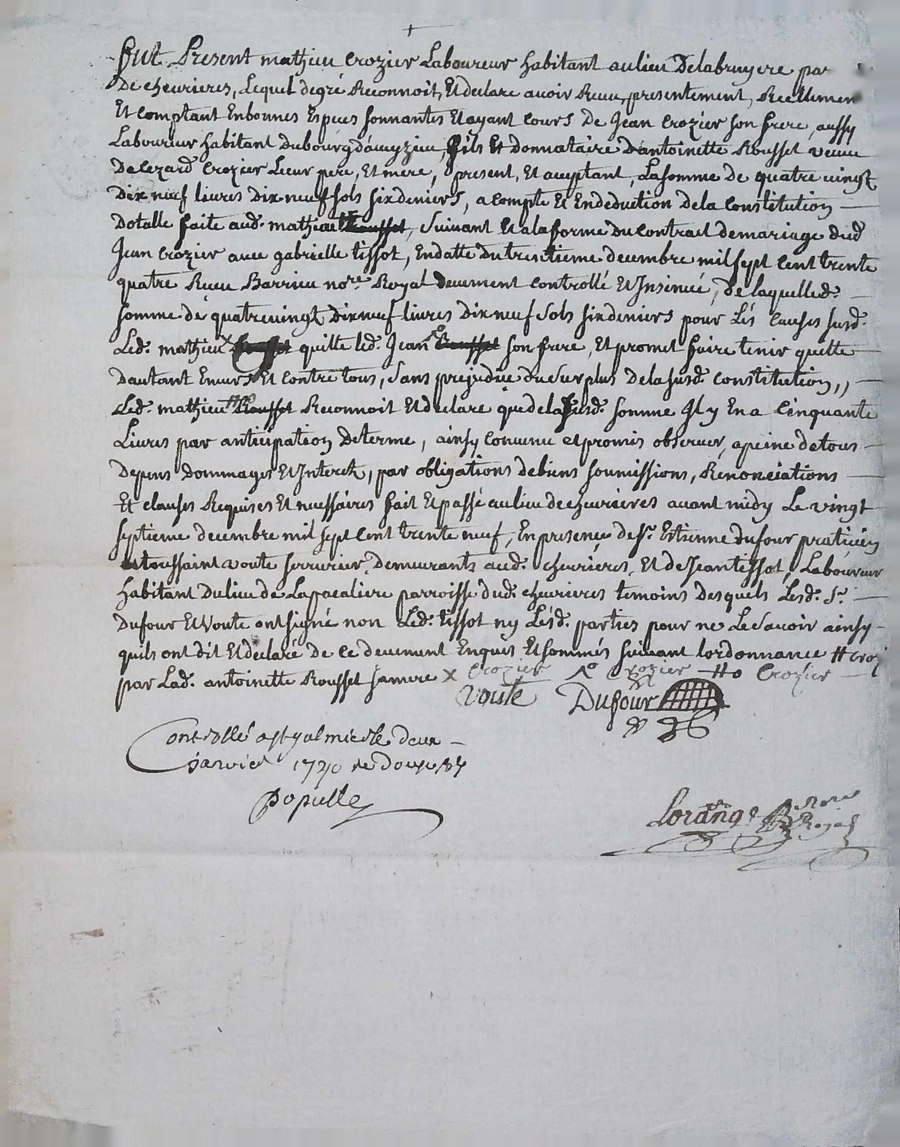 fut Present mathieu Crozier Laboureur habitant aulieu Delabruyere par
De chevrieres, Lequel degré Reconnoit, Et declare avoir Receu, presentement, Reellemen
Et Comptant Enbonnes Especes sonnantes Et ayant Cours De Jean Crozier son frere, aussy
Laboureur habitant Dubourg , fils Et Donnataire D'antoinette Rousset veuve
De Cezard Crozier Leur pere, Et mere, present, Et acceptant, Lasomme de quatre vingt
Dix neuf livres Dix neuf sols six deniers, a compte Et Endeduction de la Constitution
Dotalle faite aud. mathieu Rousset, Suivant Et alaforme Du Contrait demariage dud
Jean Crozier avec gabrielle tissot, Endatte du trentieme decembre mil sept Cent trente
quatre Receu Barrieu nore. Royal deuement Controllé Et Insinué, de laquelled.
somme de quatrevingt Dix neuf livres Dix neuf sols six deniers pour Les Causes susd.
Led. mathieu x quitte led. Jean Rousset son frere, Et promet faire tenir quitte
Dautant Envers Et Contre tous, sans prejudice Dusurplus Delasusd. Constitution,,
Led. mathieu Rousset Reconnoit Et declare que dela susd. somme Il y En a Cinquante
Livres par anticipation De terme, ainsy Convenu et promis observer, apeine detous
Depens Dommages Et Interets, par obligations debiens soumissions, Renonciations
Et clauses Requises Et necessaires fait Et passé aulieu de chevrieres avant midy Le vingt
septieme decembre mil sept Cent trente neuf, En presence de sr. Estienne dufour praticien
et toussaint voute serrurier Demeurants aud. chevrieres, Et de Jean tissot Laboureur
habitant Dulieu de Lapacaliere parroisse dud. chevrieres temoins Desquels Lesd. Sr.
Dufour Et Voute ont signé non Led. tissot ny Lesd. parties pour ne Le savoir ainsy
quils ont dit Et declaré de Ce deuement Enquis Et sommés suivant lordonnance
par Lad. antoinette Rousset sa mere x Crozier Crozier Crozier
Voute Dufour
Controllé a st galmier le deux
Janvier 1740
populle
Lorange nore Royal